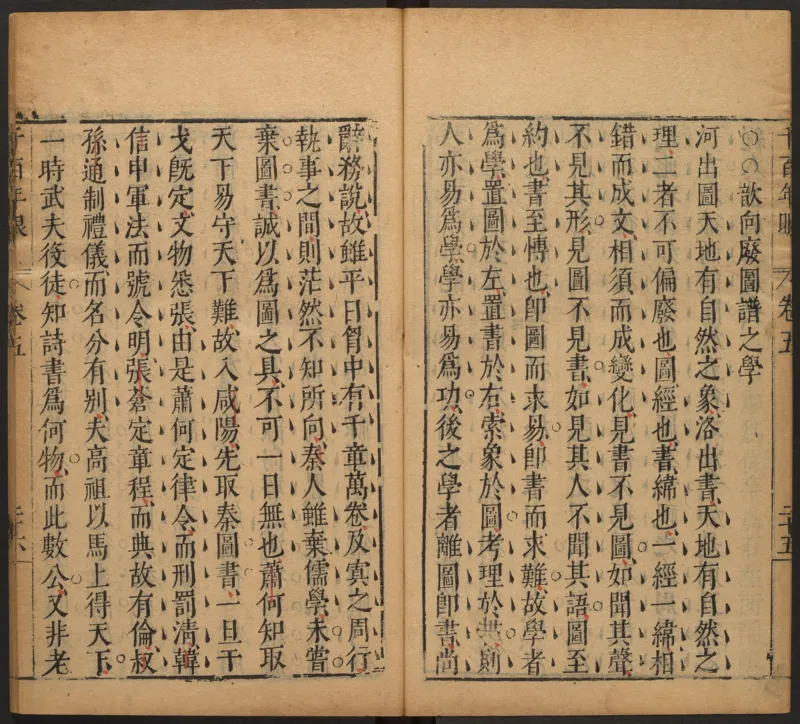 千百年眼 卷五 二十五
○○歆向廢圖譜之學
河出圖天地有自然之象洛出書天地有自然之
理二者不可偏廢也圖經也書緯也一經一緯相
錯而成文相須而成變化見書不見圖如聞其聲
不見其形見圖不見書如見其人不聞其語圖至
約也書至慱也卽圖而求易卽書而求難故學者
爲學置圖於左置書於右索象於圖考理於書則
人亦易爲學學亦易爲功後之學者離圖卽書尚
辭務說故雖平日胷中有千章萬卷及寘之周行
執事之間則茫然不知所向秦人雖棄儒學未嘗
棄圖書誠以爲圖之具不可一日無也蕭何知取
天下易守天下難故入咸陽先取秦圖書一旦干
戈旣定文物悉張由是蕭何定律令而刑罰清韓
信申軍法而號令明張蒼定章程而典故有倫叔
孫通制禮儀而名分有别夫高祖以馬上得天下
一時武夫役徒知詩書爲何物而此數公又非老
千百年眼 卷五 二十六